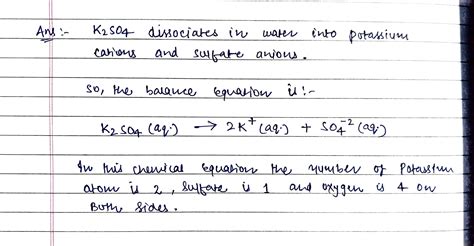 Ans:- K2SO4 dissociates in water into potassium
cations and sulfate anions.
So, the balance equation is:-
K2SO4 (aq.) → 2K⁺ (aq.) + SO4⁻² (aq.)
In this chemical equation the number of Potassium
atom is 2, sulfate is 1 and oxygen is 4 on
Both sides.